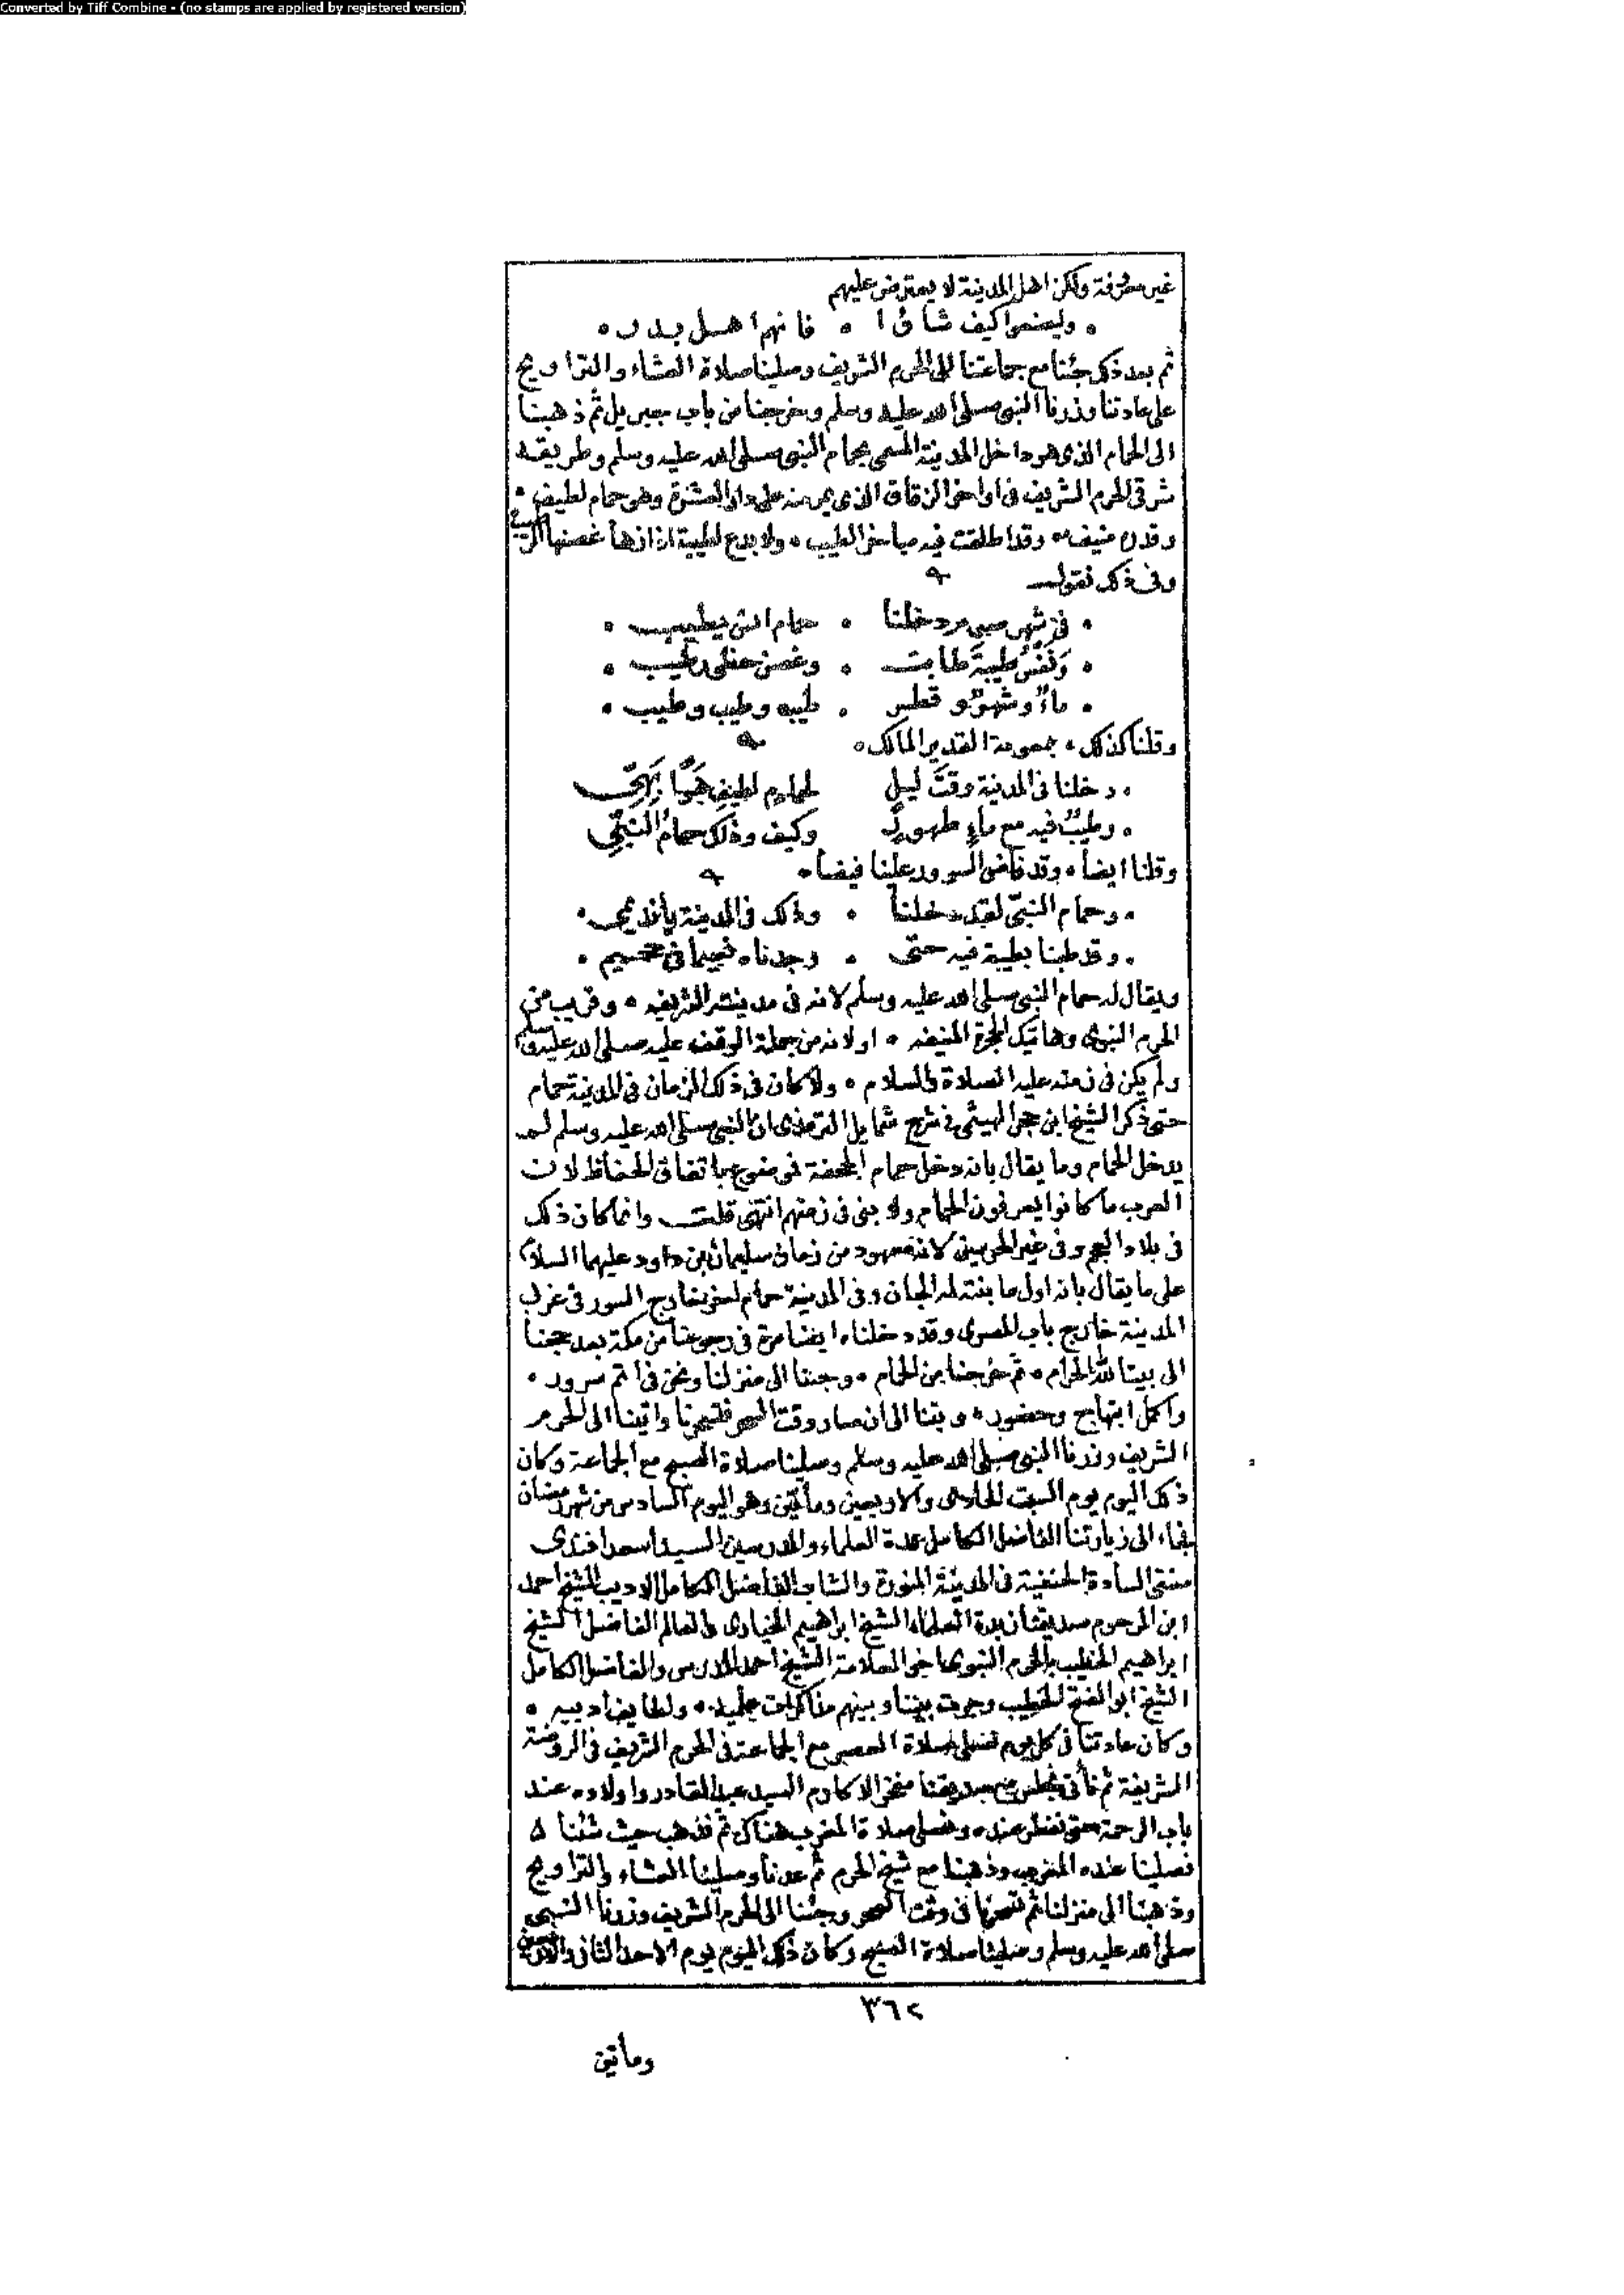 Converted by Tiff Combine - (no stamps are applied by registered version)
غير معرفة ولكن اهل المدينة لا يعترض عليهم
وليصنعوا كيف شاؤا ۰ فانهم اهل بدر ۰
ثم بعد ذلك جئنا مع جماعتنا الى الحرم الشريف وصلينا صلاة العشاء والتراويح
على عادتنا وزرنا النبى صلى الله عليه وسلم وخرجنا من باب جبريل ثم ذهبنا
الى الحمام الذى هو داخل المدينة المسمى بحمام النبى صلى الله عليه وسلم وطريقه
شرقى الحرم الشريف فى اواخر الزقاق الذى يمر منه على دار العشرة وهو حمام لطيف ۰
وقدره منيف ۰ وقد اطلقت فيه مباخر الطيب ۰ ولا بدع لطيبة اذا زها غصنها الرطيب
وفى ذلك نقول
۰ فى شهر صبر دخلنا ۰ حمام انس يطيب ۰
۰ ونفس طيبة طابت ۰ وغصن حظى رطيب ۰
۰ ماء وشهر وقطر ۰ طيبه وطيب وطيب ۰
وقلنا كذلك ۰ بمعونة القدير المالك ۰
۰ دخلنا فى المدينة وقت ليل لحمام لطيف هوا بهى
۰ وطيب فيه مع ماء طهور وكيف وذلك حمام النبى
وقلنا ايضا ۰ وقد فاض السرور علينا فيضا ۰
۰ وحمام النبى لقد دخلنا ۰ وذلك فى المدينة يا نديمى ۰
۰ وقد طبنا بطيبة فيه حتى ۰ وجدناه نعيما فى جحيم ۰
ويقال له حمام النبى صلى الله عليه وسلم لانه فى مدينته الشريفه ۰ وقريب من
الحرم النبوى وهاتيك الحجرة المنيفه ۰ او لانه من جملة الوقف عليه صلى الله عليه وسلم
ولم يكن فى زمنه عليه الصلاة والسلام ۰ ولا كان فى ذلك الزمان فى المدينة حمام
حتى ذكر الشيخ ابن حجر الهيثمى فى شرح شمايل الترمذى ان النبى صلى الله عليه وسلم لم
يدخل الحمام وما يقال بانه دخل حمام الجحفة فموضوع باتفاق الحفاظ لان
العرب ما كانوا يعرفون الحمام ولا بنى فى زمنهم انتهى قلت وانما كان ذلك
فى بلاد العجم وفى غير الحرمين لانه معهود من زمان سليمان بن داود عليهما السلام
على ما يقال بانه اول ما بنته له الجان وفى المدينة حمام اخر خارج السور فى غرب
المدينة خارج باب المصرى وقد دخلناه ايضا مرة فى رجوعنا من مكة بعد حجنا
الى بيت الله الحرام ۰ ثم خرجنا من الحمام ۰ وجئنا الى منزلنا ونحن فى اتم سرور ۰
واكمل ابتهاج وحضور ۰ وبتنا الى ان صار وقت السحر فتسحرنا واتينا الى الحرم
الشريف وزرنا النبى صلى الله عليه وسلم وصلينا صلاة الصبح مع الجماعة وكان
ذلك اليوم يوم السبت الحادى والاربعين ومأتين وهو اليوم السادس من شهر رمضان
فجاء الى زيارتنا الفاضل الكامل عمدة العلماء والمدرسين السيد اسعد افندى
مفتى السادة الحنفية فى المدينة المنورة والشاب الفاضل الكامل الاديب الشيخ احمد
ابن المرحوم صديقنا زبدة العلماء الشيخ ابراهيم الخيارى والعالم الفاضل الشيخ
ابراهيم الخطيب بالحرم النبوى اخو العلامة الشيخ احمد المدرس والفاضل الكامل
الشيخ ابو الفتح الخطيب وجرت بيننا وبينهم مذاكرات علميه ۰ ولطايف ادبيه ۰
وكان عادتنا فى كل يوم نصلى صلاة العصر مع الجماعة فى الحرم الشريف فى الروضة
الشريفة ثم نأتى نجلس مع صديقنا مفخر الاكارم السيد عبد القادر واولاده عند
باب الرحمة حتى نفطر عنده ونصلى صلاة المغرب هناك ثم نذهب حيث شئنا
فصلينا عنده المغرب وذهبنا مع شيخ الحرم ثم عدنا وصلينا العشاء والتراويح
وذهبنا الى منزلنا ثم تسحرنا فى وقت السحر وجئنا الى الحرم الشريف وزرنا النبى
صلى الله عليه وسلم وصلينا صلاة الصبح وكان ذلك اليوم يوم الاحد الثانى والاربعين
٣٦٢
ومأتين